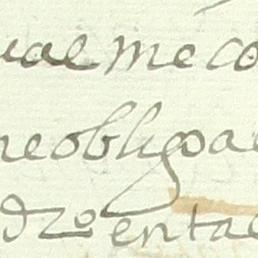 ual me co
me obligo a
dro en tal